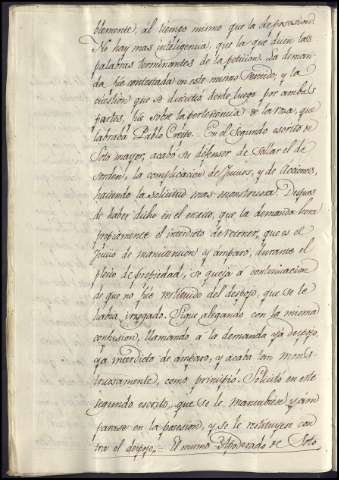 blemente, al tiempo mismo que la de posesion.
No hay mas inteligencia, que la que dicen las
palabras terminantes de la peticion. La deman
da fue contestada en este mismo sentido, y la
question que se discutió desde luego por ambas
partes, fue sobre la pertenencia de la roza, que
labraba Pablo Crespo. En el segundo escrito de
Soto mayor, acabó su defensor de sellar el de
sorden, la complicacion de Juicios, y de Acciones,
haciendo la solicitud mas monstruosa. Despues
de haber dicho en el exceso, que la demanda era
propiamente el interdicto de retener, que es el
juicio de manutencion y amparo, durante el
pleito de propiedad, se queja á continuacion
de que no fue restituido del despojo, que se le
habia irrogado. Sigue alegando con la misma
confusion, llamando á la demanda ya despojo,
ya interdicto de amparo, y acaba tan mons
truosamente, como principió. Solicitó en este
segundo escrito, que se le mantubiese y am
parase en la posesion, y se le restituyese con
tra el despojo. El mismo Apoderado de Soto